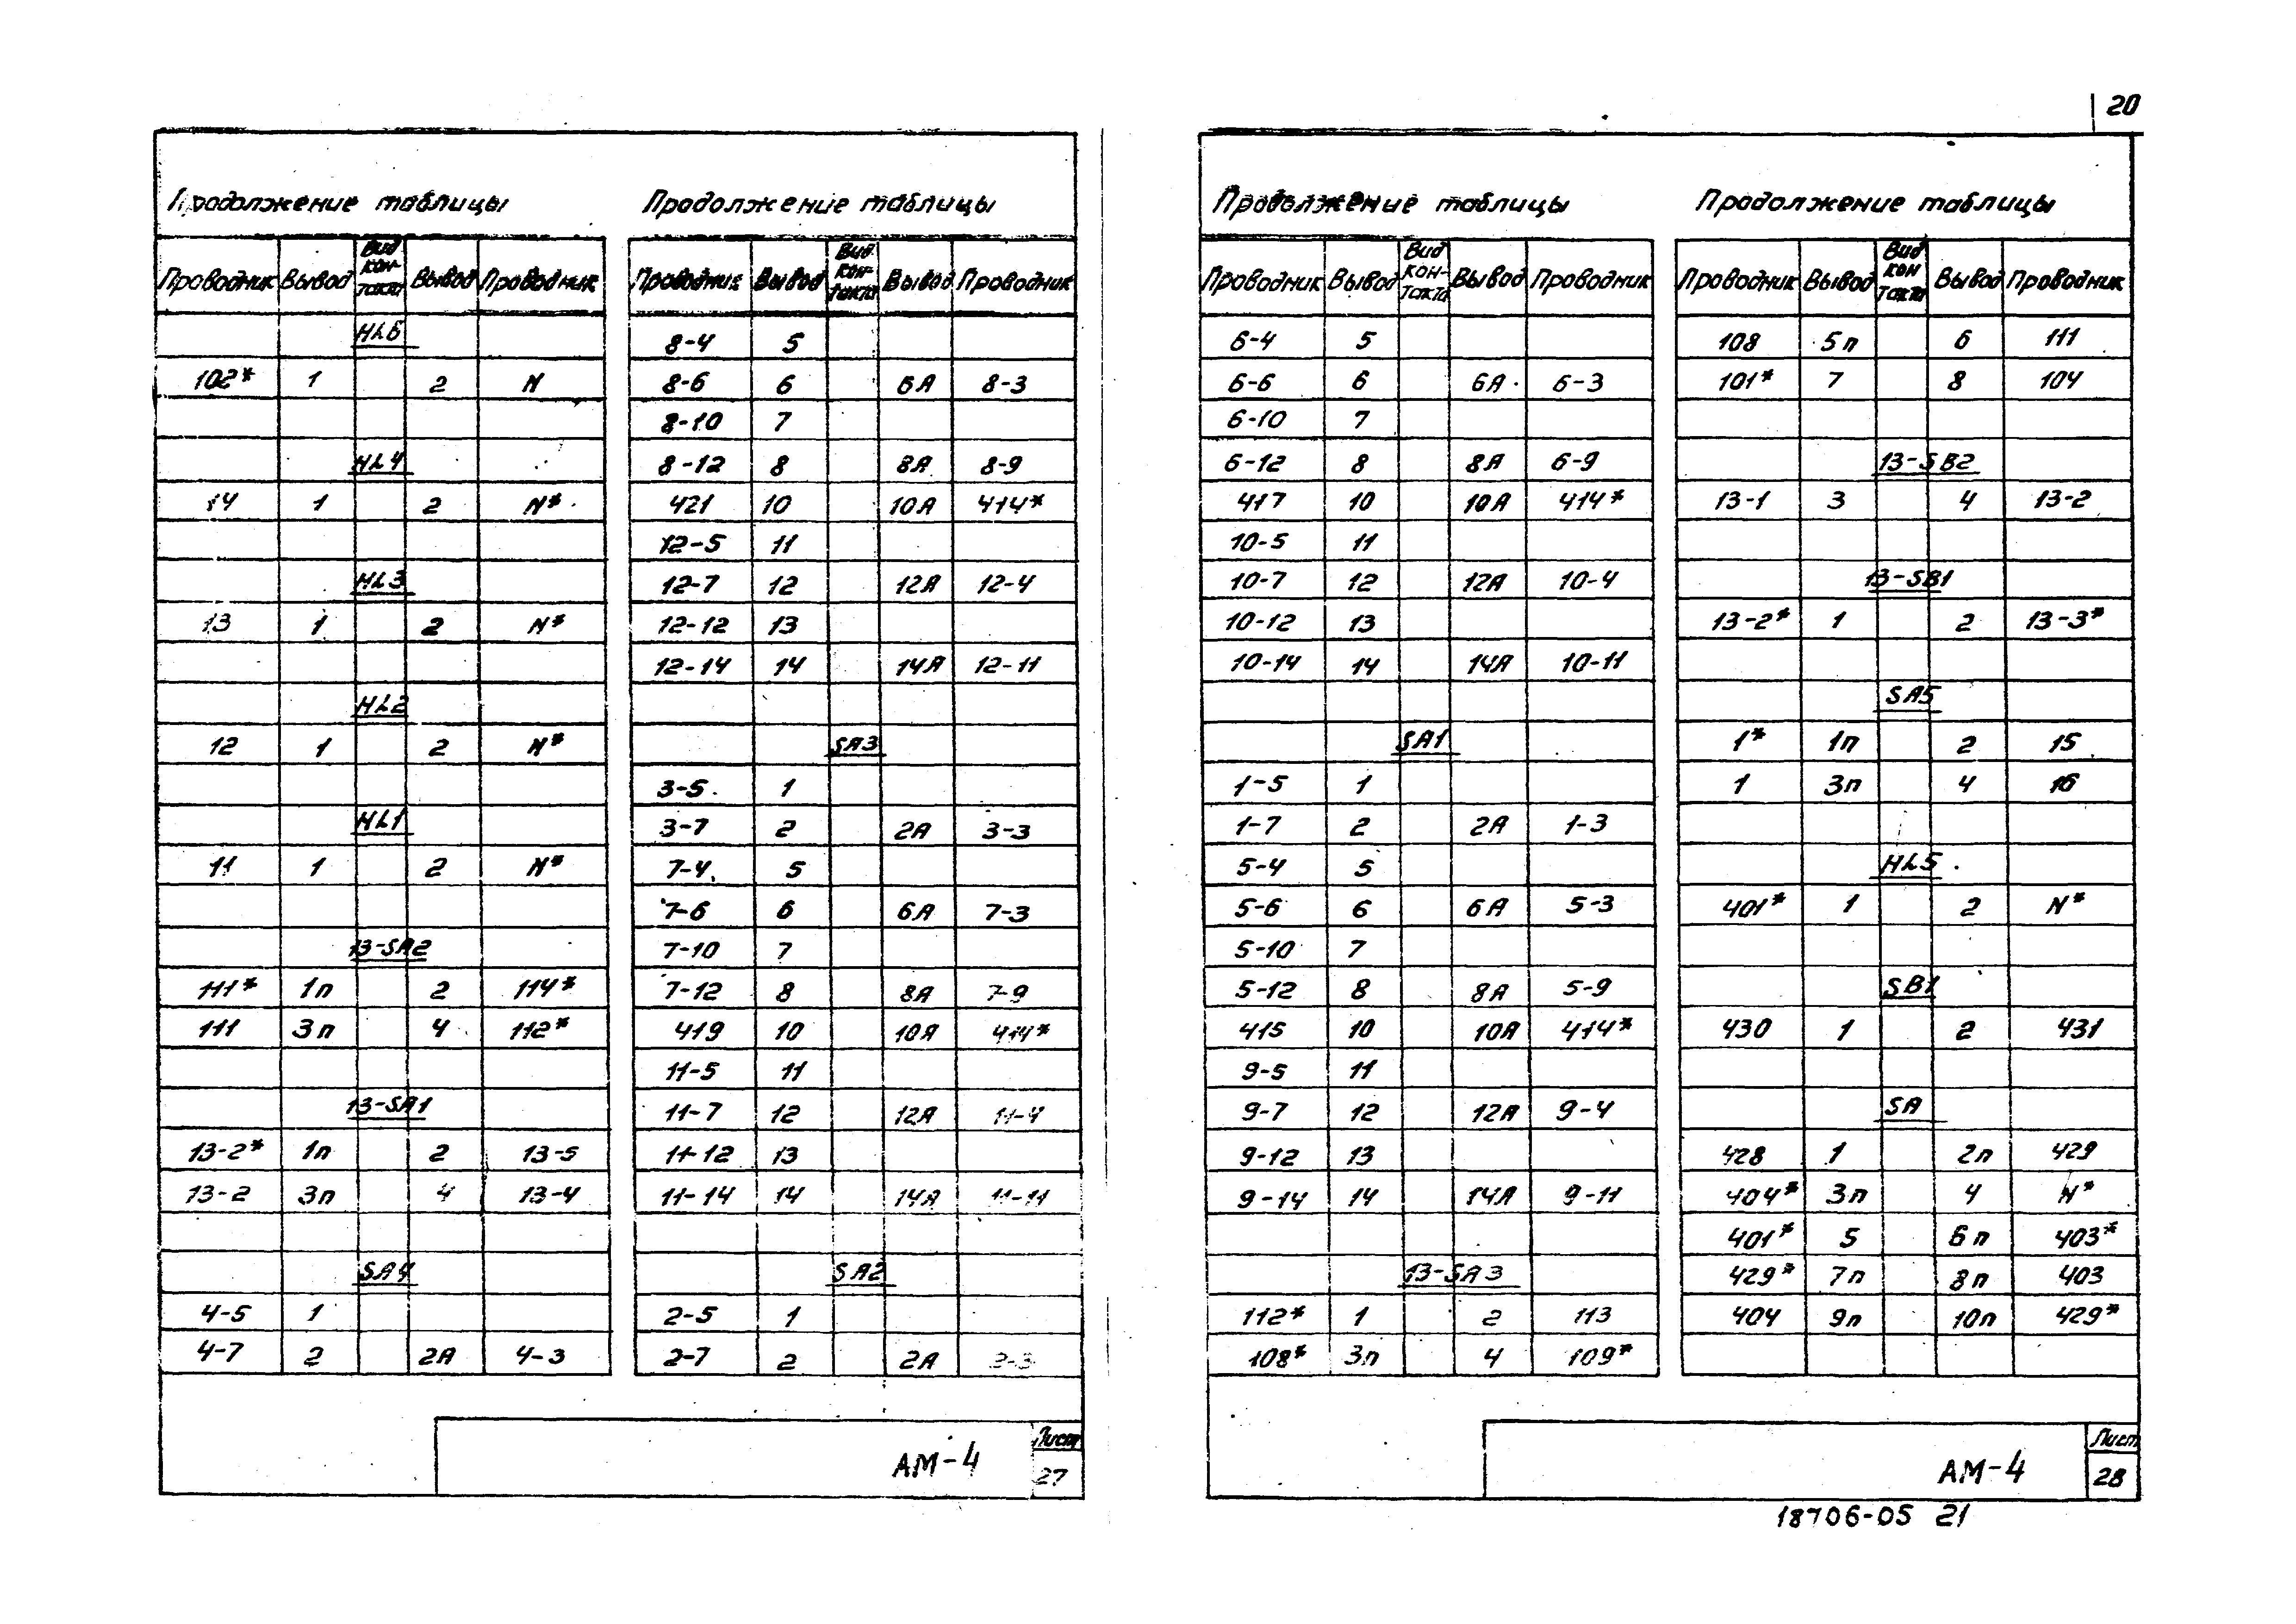 20
Продолжение таблицы
Проводник Вывод Вид кон- такта Вывод Проводник
HL6
102* 1 2 N
HL4
14 1 2 N*
HL3
13 1 2 N*
HL2
12 1 2 N*
HL1
11 1 2 N*
13-SA2
111* 1п 2 114*
111 3п 4 112*
13-SA1
13-2* 1п 2 13-5
13-2 3п 4 13-4
SA4
4-5 1
4-7 2 2А 4-3
Продолжение таблицы
Проводник Вывод Вид кон- такта Вывод Проводник
8-4 5
8-6 6 6А 8-3
8-10 7
8-12 8 8А 8-9
421 10 10А 414*
12-5 11
12-7 12 12А 12-4
12-12 13
12-14 14 14А 12-11
SA3
3-5 1
3-7 2 2А 3-3
7-4 5
7-6 6 6А 7-3
7-10 7
7-12 8 8А 7-9
419 10 10А 414*
11-5 11
11-7 12 12А 11-4
11-12 13
11-14 14 14А 11-11
SA2
2-5 1
2-7 2 2А 2-3
АМ-4
Лист
27
Продолжение таблицы
Проводник Вывод Вид кон- такта Вывод Проводник
6-4 5
6-6 6 6А 6-3
6-10 7
6-12 8 8А 6-9
417 10 10А 414*
10-5 11
10-7 12 12А 10-4
10-12 13
10-14 14 14А 10-11
SA1
1-5 1
1-7 2 2А 1-3
5-4 5
5-6 6 6А 5-3
5-10 7
5-12 8 8А 5-9
415 10 10А 414*
9-5 11
9-7 12 12А 9-4
9-12 13
9-14 14 14А 9-11
13-SA3
112* 1 2 113
108* 3п 4 109*
Продолжение таблицы
Проводник Вывод Вид кон такта Вывод Проводник
108 5п 6 111
101* 7 8 104
13-SB2
13-1 3 4 13-2
13-SB1
13-2* 1 2 13-3*
SA5
1* 1п 2 15
1 3п 4 16
HL5
401* 1 2 N*
SB1
430 1 2 431
SA
428 1 2п 429
404* 3п 4 N*
401* 5 6п 403*
429* 7п 8п 403
404 9п 10п 429*
АМ-4
Лист
28
18706-05 21